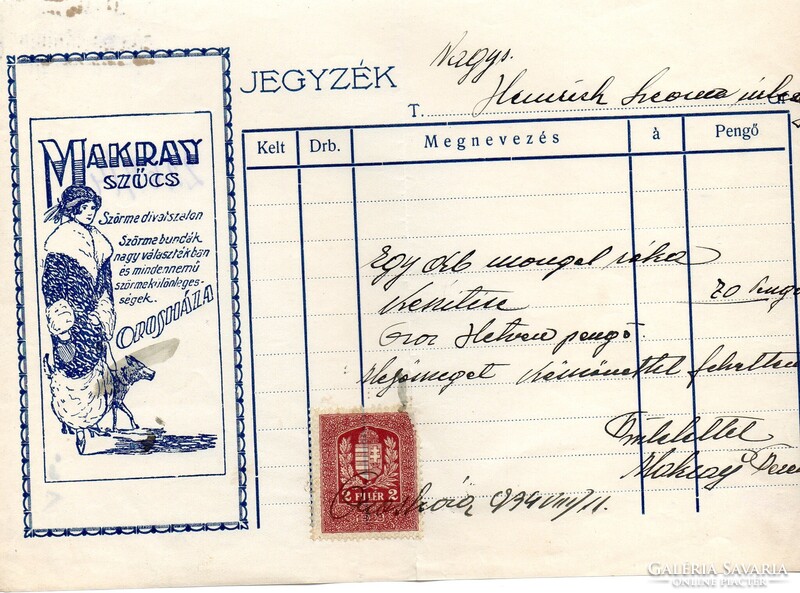 MAKRAY
SZŰCS
Szőrme divatszalon
Szőrme bundák
nagy választékban
és mindennemű
szőrmekülönleges-
ségek.
OROSHÁZA
JEGYZÉK
Nagys.
T. Heinrich
Kelt Drb. Megnevezés à Pengő
Egy drb mongol róka
készítése 70 Pengő
azaz Hetven pengő.
köszönettel
Tisztelettel
Makray
2 FILÉR 2
Orosháza
GALÉRIA SAVARIA
ONLINE PIACTÉR